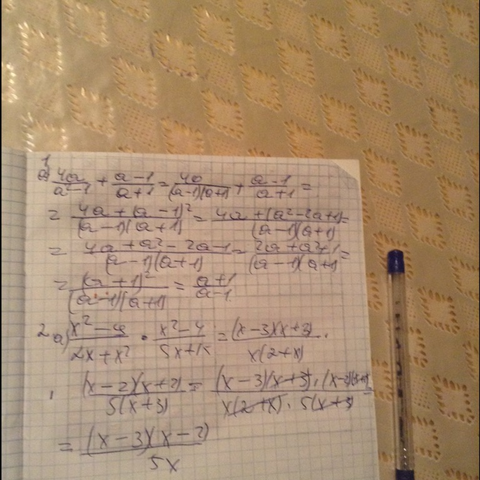 1
а) 4a/(a²-1) + (a-1)/(a+1) = 4a/((a-1)(a+1)) + (a-1)/(a+1) =
= (4a+(a-1)²)/((a-1)(a+1)) = (4a+(a²-2a+1)/((a-1)(a+1)) =
= (4a+a²-2a-1)/((a-1)(a+1)) = (2a+a²+1)/((a-1)(a+1)) =
= (a+1)²/((a-1)(a+1)) = (a+1)/(a-1)
2 а) (x²-9)/(2x+x²) · (x²-4)/(5x+15) = (x-3)(x+3)/(x(2+x)) ·
· (x-2)(x+2)/(5(x+3)) = (x-3)(x+3)·(x-2)(x+2)/(x(2+x)·5(x+3)) =
= (x-3)(x-2)/5x